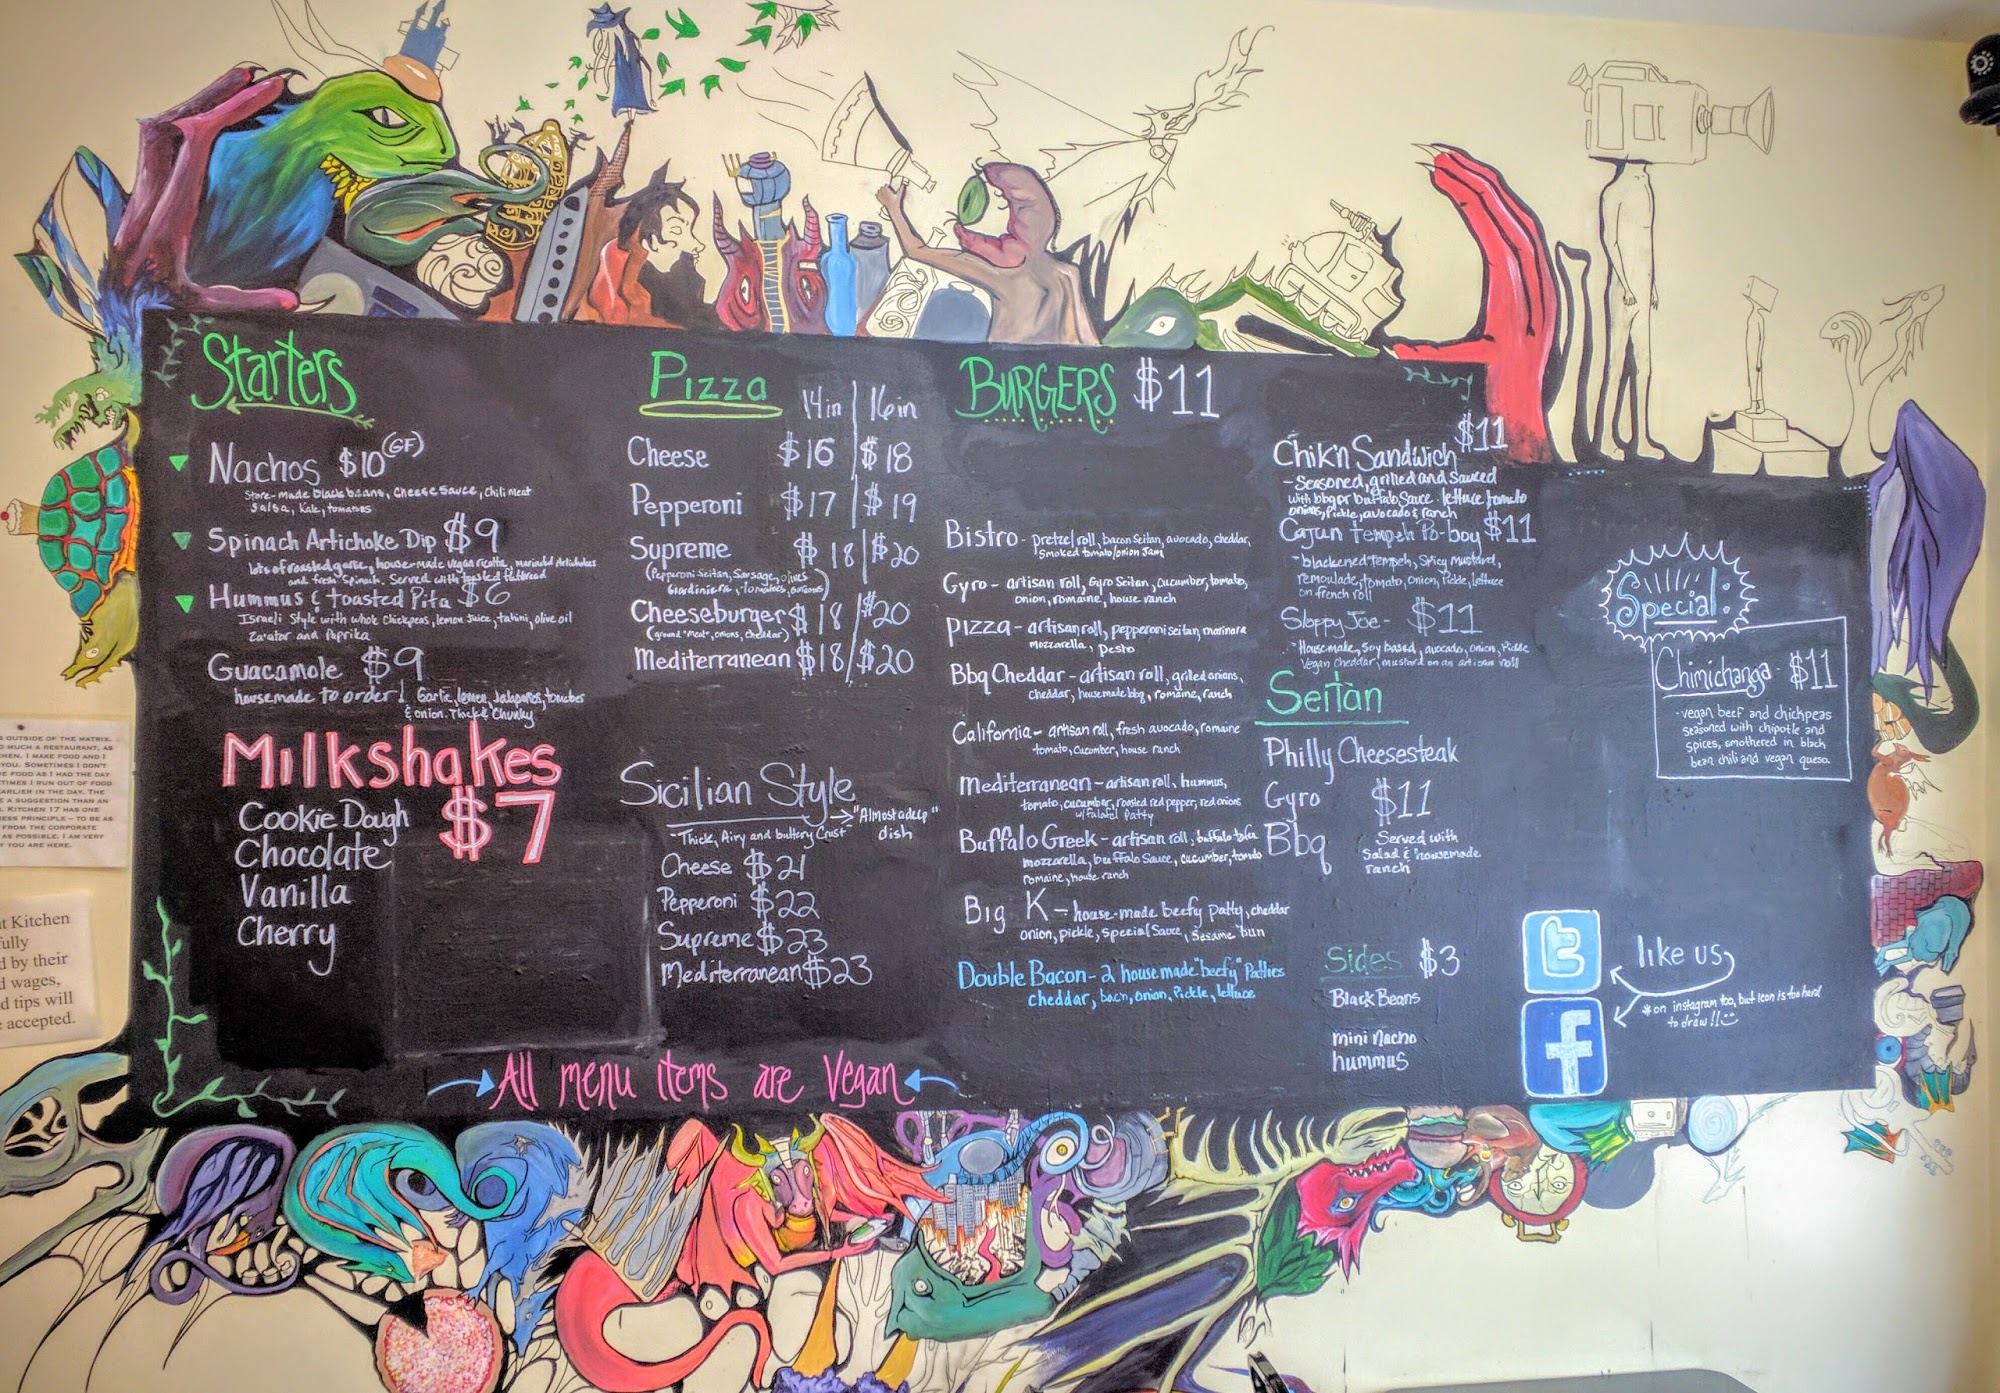 Starters
Nachos $10 (GF)
Store-made black beans, cheese sauce, chili meat
Salsa, Kale, tomatoes
Spinach Artichoke Dip $9
lots of roasted garlic, house-made vegan ricotta, marinated Artichokes
and fresh Spinach. Served with toasted flatbread
Hummus & toasted Pita $6
Israeli Style with whole Chickpeas, lemon Juice, tahini, olive oil
Za'ator and Paprika
Guacamole $9
housemade to order! Garlic, lemon, Jalapenos, tomatoes
& onion. Thick & Chunky
Milkshakes
$7
Cookie Dough
Chocolate
Vanilla
Cherry
Pizza 14in | 16in
Cheese $16 $18
Pepperoni $17 $19
Supreme $18 $20
(Pepperoni Seitan, Sausage, olives
Giardiniera, tomatoes, onions)
Cheeseburger $18 $20
(ground "meat", onions, cheddar)
Mediterranean $18 / $20
Sicilian Style
"Almost a deep"
dish
-Thick, Airy and buttery Crust
Cheese $21
Pepperoni $22
Supreme $23
Mediterranean $23
All menu items are Vegan
BURGERS $11
Bistro - pretzel roll, bacon Seitan, avocado, cheddar,
Smoked tomato/onion Jam
Gyro - artisan roll, Gyro Seitan, cucumber, tomato,
onion, romaine, house ranch
Pizza - artisan roll, pepperoni seitan, marinara
mozzarella, pesto
Bbq Cheddar - artisan roll, grilled onions,
cheddar, housemade bbq, romaine, ranch
California - artisan roll, fresh avocado, romaine
tomato, cucumber, house ranch
Mediterranean - artisan roll, hummus,
tomato, cucumber, roasted red pepper, red onions
w/falafel Patty
Buffalo Greek - artisan roll, buffalo tofu
mozzarella, buffalo Sauce, cucumber, tomato
romaine, house ranch
Big K - house-made beefy patty, cheddar
onion, pickle, special Sauce, Sesame bun
Double Bacon - 2 housemade "beefy" Patties
cheddar, bac'n, onion, Pickle, lettuce
Chik'n Sandwich $11
- Seasoned, grilled and Sauced
with bbq or buffalo Sauce. lettuce, tomato
onions, Pickle, avocado & ranch
Cajun Tempeh Po-boy $11
-blackened Tempeh, Spicy mustard,
remoulade, tomato, onion, Pickle, lettuce
on french roll
Sloppy Joe - $11
-Housemade, Soy based, avocado, onion, Pickle
Vegan Cheddar, mustard on an artisan roll
Seitan
Philly Cheesesteak
Gyro
Bbq
$11
Served with
Salad & housemade
ranch
Sides $3
Black Beans
mini Nacho
hummus
Special:
Chimichanga - $11
-vegan beef and chickpeas
seasoned with chipotle and
spices, smothered in black
bean chili and vegan queso.
t
f
like us
*on instagram too, but icon is too hard
to draw!!
S OUTSIDE OF THE MATRIX.
MUCH A RESTAURANT, AS
CHEN. I MAKE FOOD AND I
YOU. SOMETIMES I DON'T
E FOOD AS I HAD THE DAY
TIMES I RUN OUT OF FOOD
EARLIER IN THE DAY. THE
E A SUGGESTION THAN AN
. KITCHEN 17 HAS ONE
ESS PRINCIPLE – TO BE AS
FROM THE CORPORATE
AS POSSIBLE. I AM VERY
YOU ARE HERE.
t Kitchen
fully
d by their
d wages,
d tips will
e accepted.